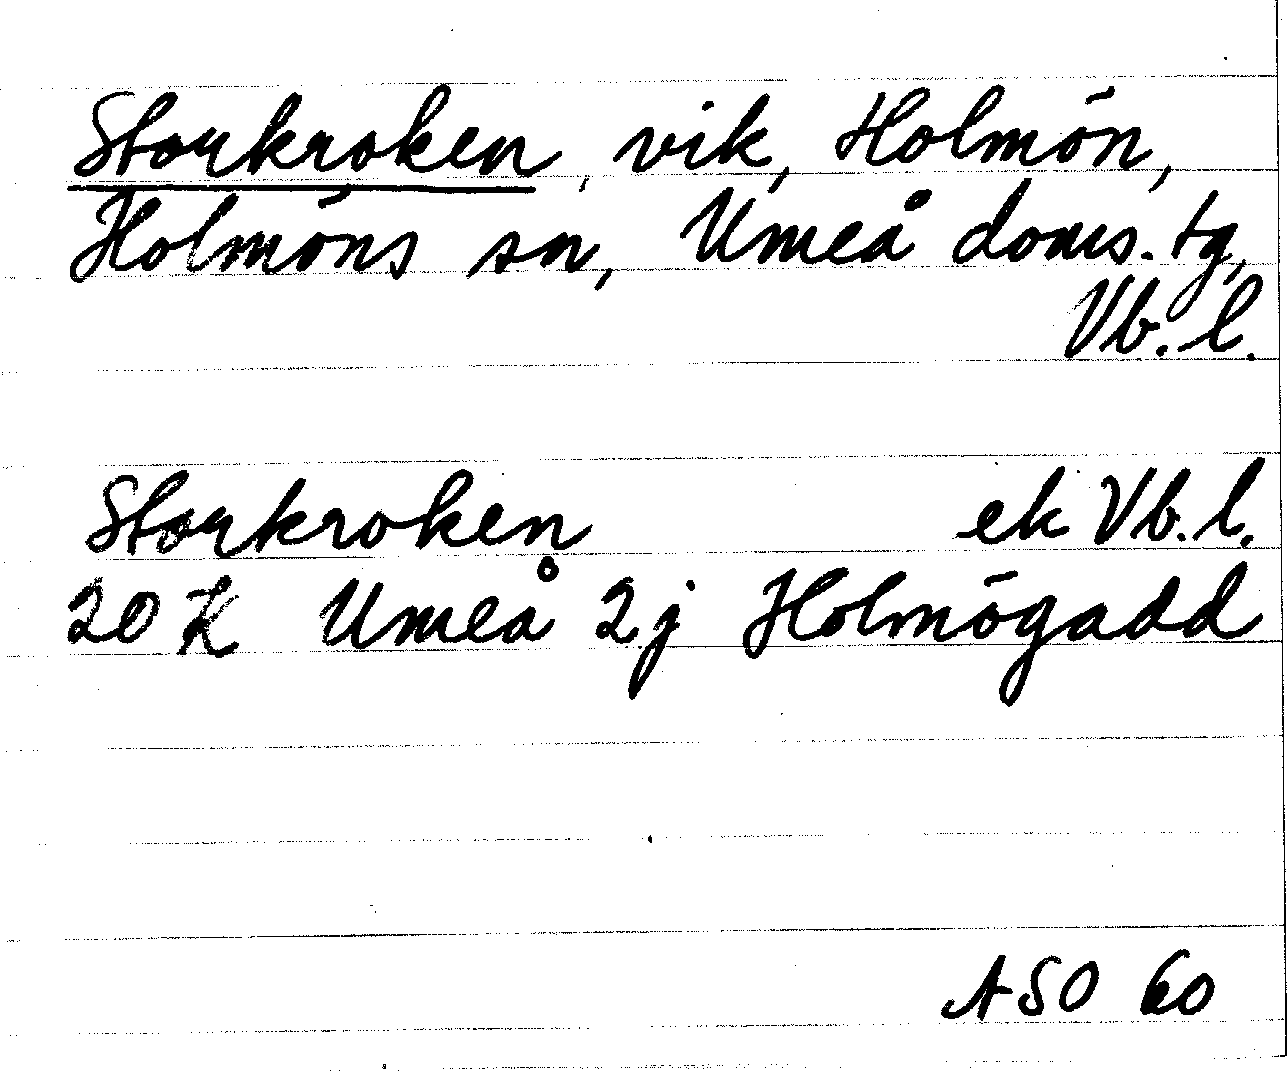 Storkroken, vik, Holmön,
Holmöns sn, Umeå doms. tg,
Vb. l.
Storkroken ek Vb. l.
20 K Umeå 2j Holmögadd
ASO 60